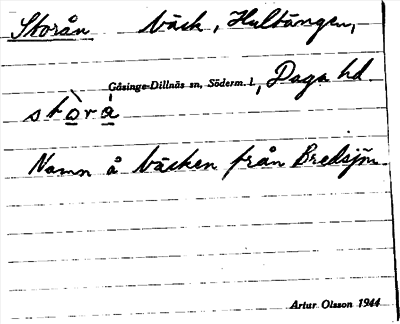 Storån bäck, Hultängen,
Gåsinge-Dillnäs sn, Söderm. l., Daga hd
stòrá
Namn å bäcken från Bredsjön.
Artur Olsson 1944